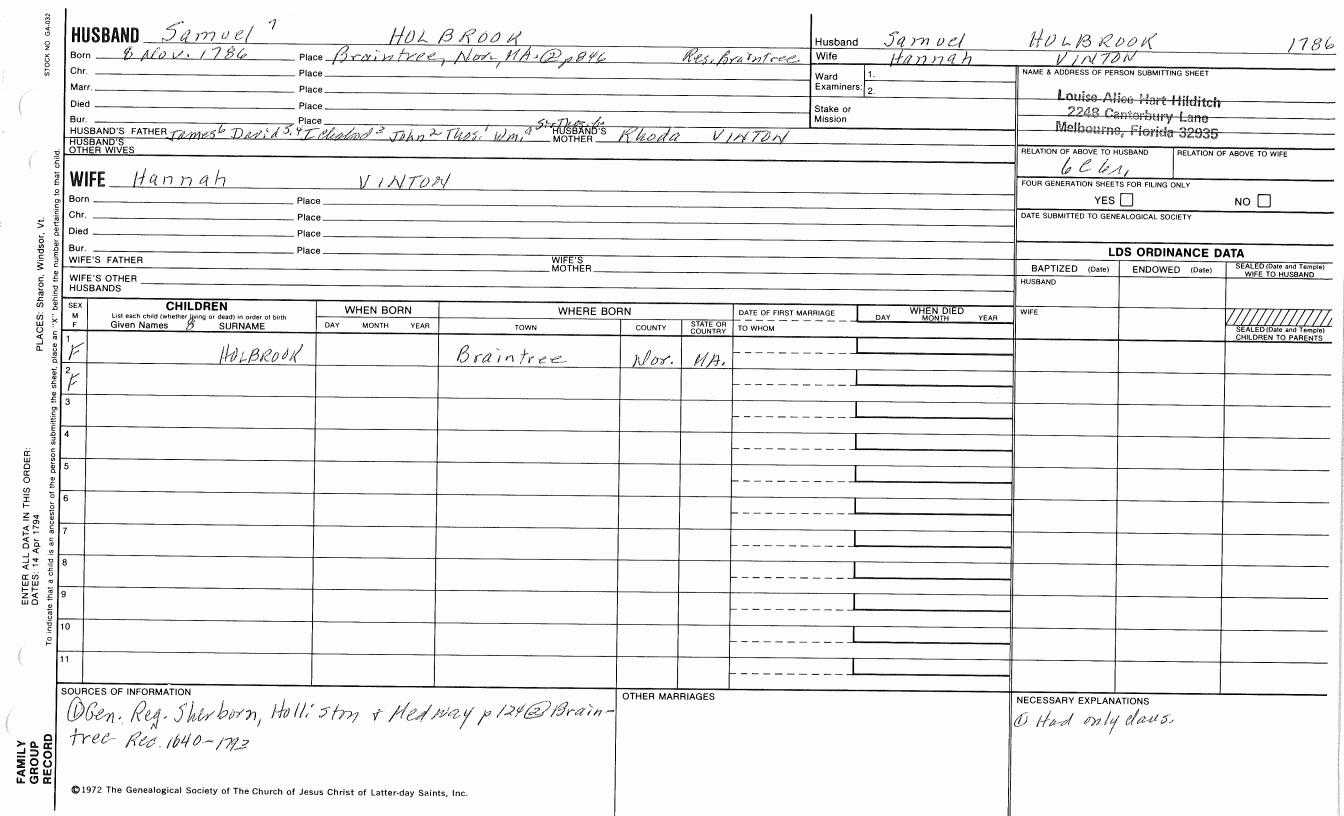 STOCK NO. GA-032
HUSBAND Samuel 7 HOLBROOK
Born 8 Nov. 1786 Place Braintree, Nor, MA. ② p846 Res. Braintree
Chr. Place
Marr. Place
Died Place
Bur. Place
HUSBAND'S FATHER James 6 David 5,4 Ichabod 3 John 2 Thos. 1 Wm. HUSBAND'S MOTHER Rhoda VINTON
HUSBAND'S OTHER WIVES
WIFE Hannah VINTON
Born Place
Chr. Place
Died Place
Bur. Place
WIFE'S FATHER WIFE'S MOTHER
WIFE'S OTHER HUSBANDS
Husband Samuel HOLBROOK 1786
Wife Hannah VINTON
Ward Examiners: 1. 2.
Stake or Mission
NAME & ADDRESS OF PERSON SUBMITTING SHEET
Louise Alice Hart Hilditch
2248 Canterbury Lane
Melbourne, Florida 32935
RELATION OF ABOVE TO HUSBAND RELATION OF ABOVE TO WIFE
FOUR GENERATION SHEETS FOR FILING ONLY
YES NO
DATE SUBMITTED TO GENEALOGICAL SOCIETY
LDS ORDINANCE DATA
BAPTIZED (Date) ENDOWED (Date) SEALED (Date and Temple) WIFE TO HUSBAND
HUSBAND
WIFE
SEALED (Date and Temple) CHILDREN TO PARENTS
SEX M F
CHILDREN
List each child (whether living or dead) in order of birth
Given Names 8 SURNAME
WHEN BORN
DAY MONTH YEAR
WHERE BORN
TOWN COUNTY STATE OR COUNTRY
DATE OF FIRST MARRIAGE
TO WHOM
WHEN DIED
DAY MONTH YEAR
1 F HOLBROOK Braintree Nor. MA.
2 F
3
4
5
6
7
8
9
10
11
SOURCES OF INFORMATION
① Gen. Reg. Sherborn, Holliston & Medway p 124 ② Brain-
tree Rec. 1640-1793
OTHER MARRIAGES
NECESSARY EXPLANATIONS
① Had only daus.
©1972 The Genealogical Society of The Church of Jesus Christ of Latter-day Saints, Inc.
FAMILY GROUP RECORD
ENTER ALL DATA IN THIS ORDER:
DATES: 14 Apr 1794
PLACES: Sharon, Windsor, Vt.
To indicate that a child is an ancestor of the person submitting the sheet, place an "X" behind the number pertaining to that child.